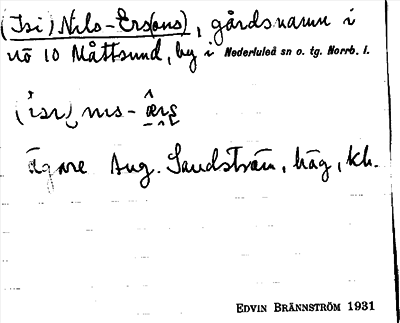 (Isi) Nils-Ers(ons), gårdsnamn i
nö 10 Måttsund, by i Nederluleå sn o. tg. Norrb. l.
(isɪ) nɪs- ærs
ägare Aug. Sandström, häg, kh.
EDVIN BRÄNNSTRÖM 1931